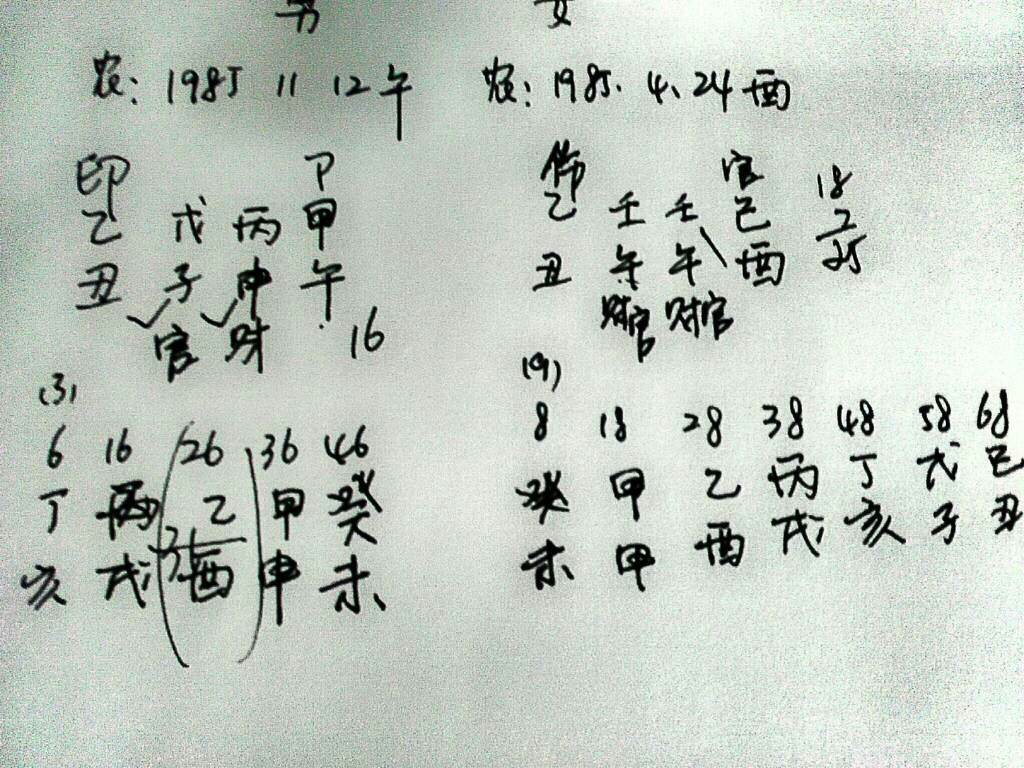 男 女
农: 1985 11 12午 农: 1985. 4. 24酉
印 P 伤 官
乙 戊 丙 甲 乙 壬 壬 己 18
丑 子 申 午 丑 午 午 酉 25
官 财 16 财官 财官
(3) (9)
6 16 26 36 46 8 18 28 38 48 58 68
丁 丙 乙 甲 癸 癸 甲 乙 丙 丁 戊 己
亥 戌 酉 申 未 未 甲 酉 戌 亥 子 丑